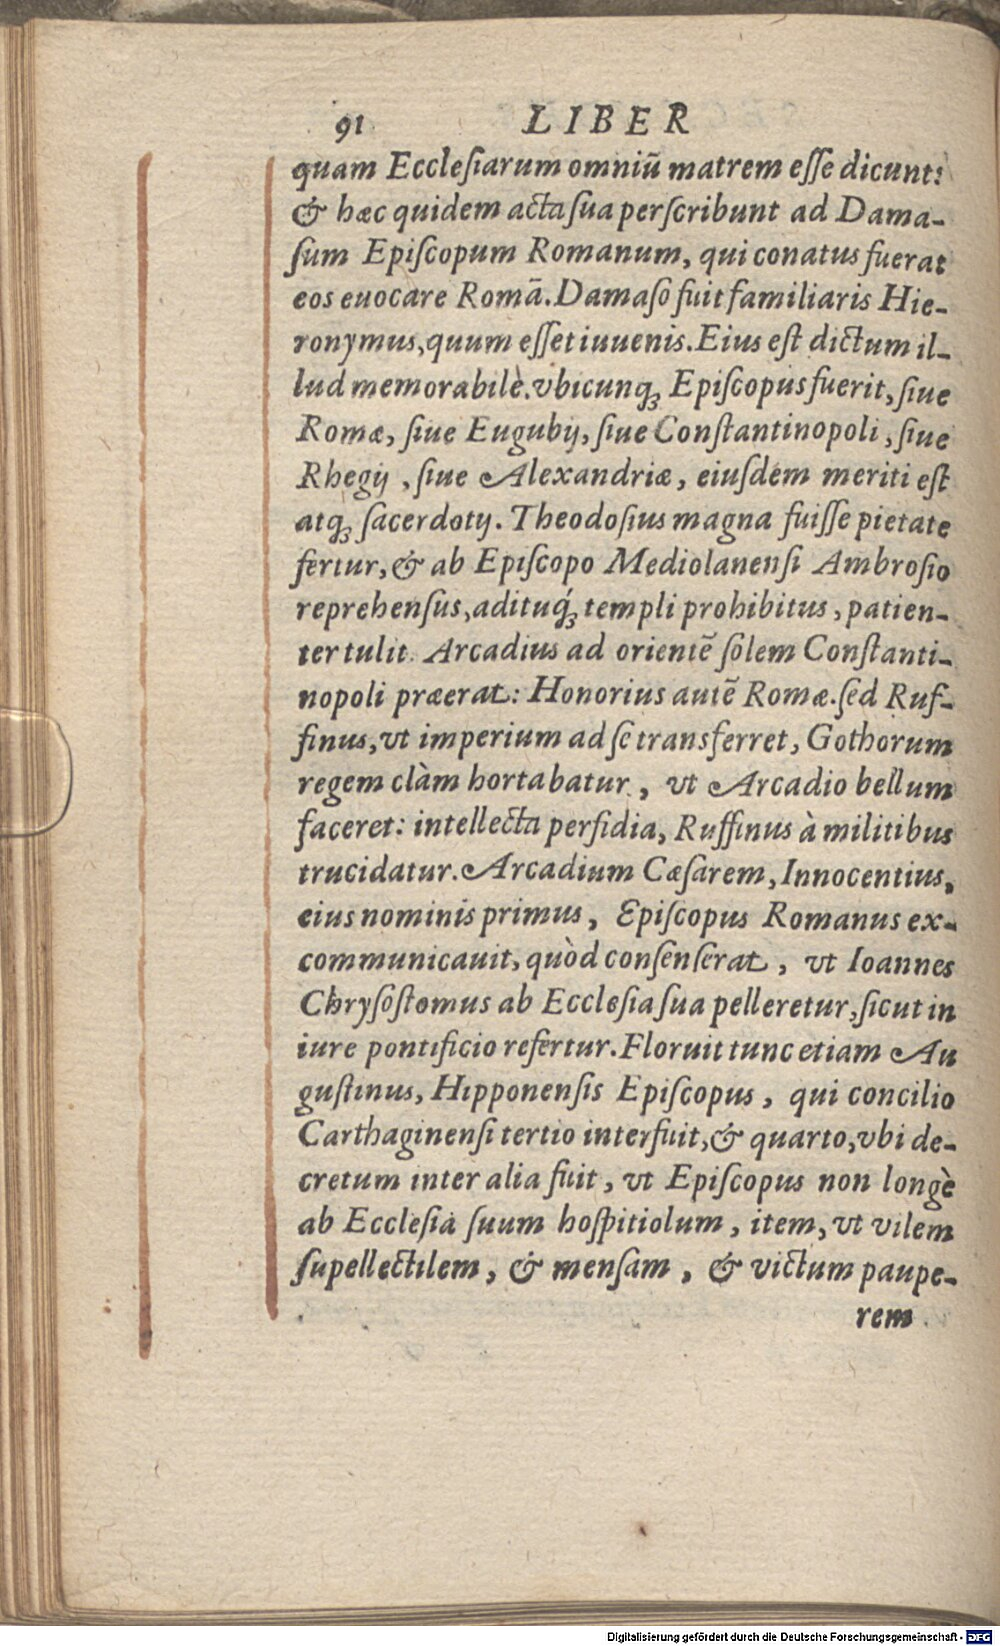 91 LIBER
quam Eccleſiarum omniū matrem eſſe dicunt:
& hæc quidem acta ſua perſcribunt ad Dama-
ſum Epiſcopum Romanum, qui conatus fuerat
eos euocare Romā. Damaſo fuit familiaris Hie-
ronymus, quum eſſet iuuenis. Eius eſt dictum il-
lud memorabilè. vbicunq; Epiſcopus fuerit, ſiue
Romæ, ſiue Eugubij, ſiue Conſtantinopoli, ſiue
Rhegij, ſiue Alexandriæ, eiuſdem meriti eſt
atq; ſacerdotij. Theodoſius magna fuiſſe pietate
fertur, & ab Epiſcopo Mediolanenſi Ambroſio
reprehenſus, adituq́; templi prohibitus, patien-
ter tulit. Arcadius ad orientē ſolem Conſtanti-
nopoli præerat: Honorius autē Romæ. ſed Ruf-
finus, vt imperium ad ſe transferret, Gothorum
regem clàm hortabatur, vt Arcadio bellum
faceret: intellecta perfidia, Ruffinus à militibus
trucidatur. Arcadium Cæſarem, Innocentius,
eius nominis primus, Epiſcopus Romanus ex-
communicauit, quòd conſenſerat, vt Ioannes
Chryſoſtomus ab Eccleſia ſua pelleretur, ſicut in
iure pontificio refertur. Floruit tunc etiam Au
guſtinus, Hipponenſis Epiſcopus, qui concilio
Carthaginenſi tertio interfuit, & quarto, vbi de-
cretum inter alia fuit, vt Epiſcopus non longè
ab Eccleſia ſuum hoſpitiolum, item, vt vilem
ſupellectilem, & menſam, & victum paupe-
rem
Digitalisierung gefördert durch die Deutsche Forschungsgemeinschaft - DFG